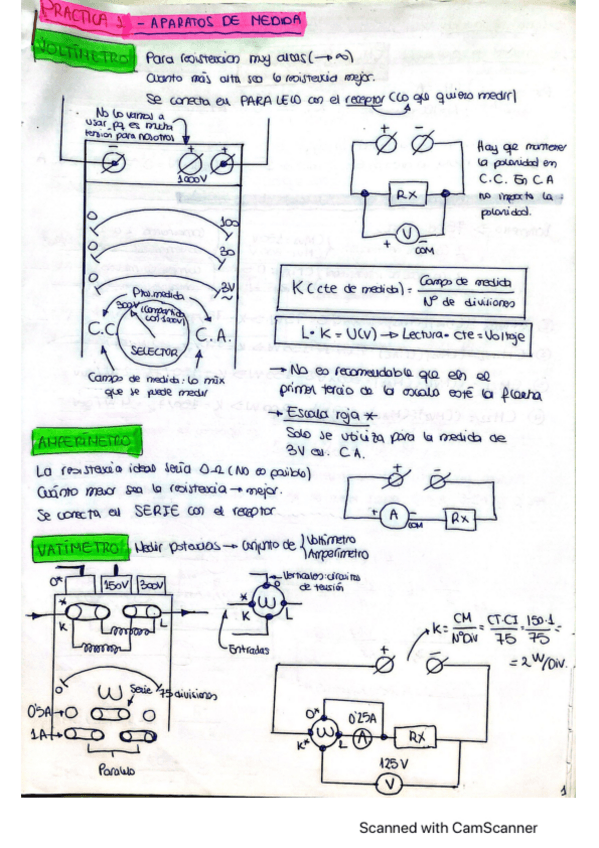 PRACTICA 1 - APARATOS DE MEDIDA
VOLTÍMETRO
Para resistencias muy altas (→∞)
Cuanto más alta sea la resistencia mejor.
Se conecta en PARALELO con el receptor (Lo que quiero medir)
No lo vamos a
usar pq es mucha
tensión para nosotros
1000V
0 100
0 30
0 3V
~
Pto. medida
300V
(compartida
con 1000V)
C.C.
C.A.
SELECTOR
Campo de medida: lo máx
que se puede medir
+ −
RX
+ V COM
Hay que mantener
la polaridad en
C.C. En C.A
no importa la
polaridad.
K (cte de medida) = Campo de medida / Nº de divisiones
L · K = U(V) → Lectura · cte = Voltaje
→ No es recomendable que en el
primer tercio de la escala esté la flecha
→ Escala roja *
Solo se utiliza para la medida de
3V en C.A.
AMPERÍMETRO
La resistencia ideal sería 0 Ω (No es posible)
Cuánto menor sea la resistencia → mejor.
Se conecta en SERIE con el receptor
+ −
+ A COM RX
VATÍMETRO
Medir potencias → Conjunto de { Voltímetro
Amperímetro
0* 150V 300V
* K L
Verticales: circuitos
de tensión
* K W L
Entradas
0 W Serie 75 divisiones
0'5A
1A
Paralelo
K = CM / NºDiv = CT·CI / 75 = 150·1 / 75 =
= 2 W/Div.
+ −
0* W K* L
0'25A
A
RX
125 V
V
1
Scanned with CamScanner